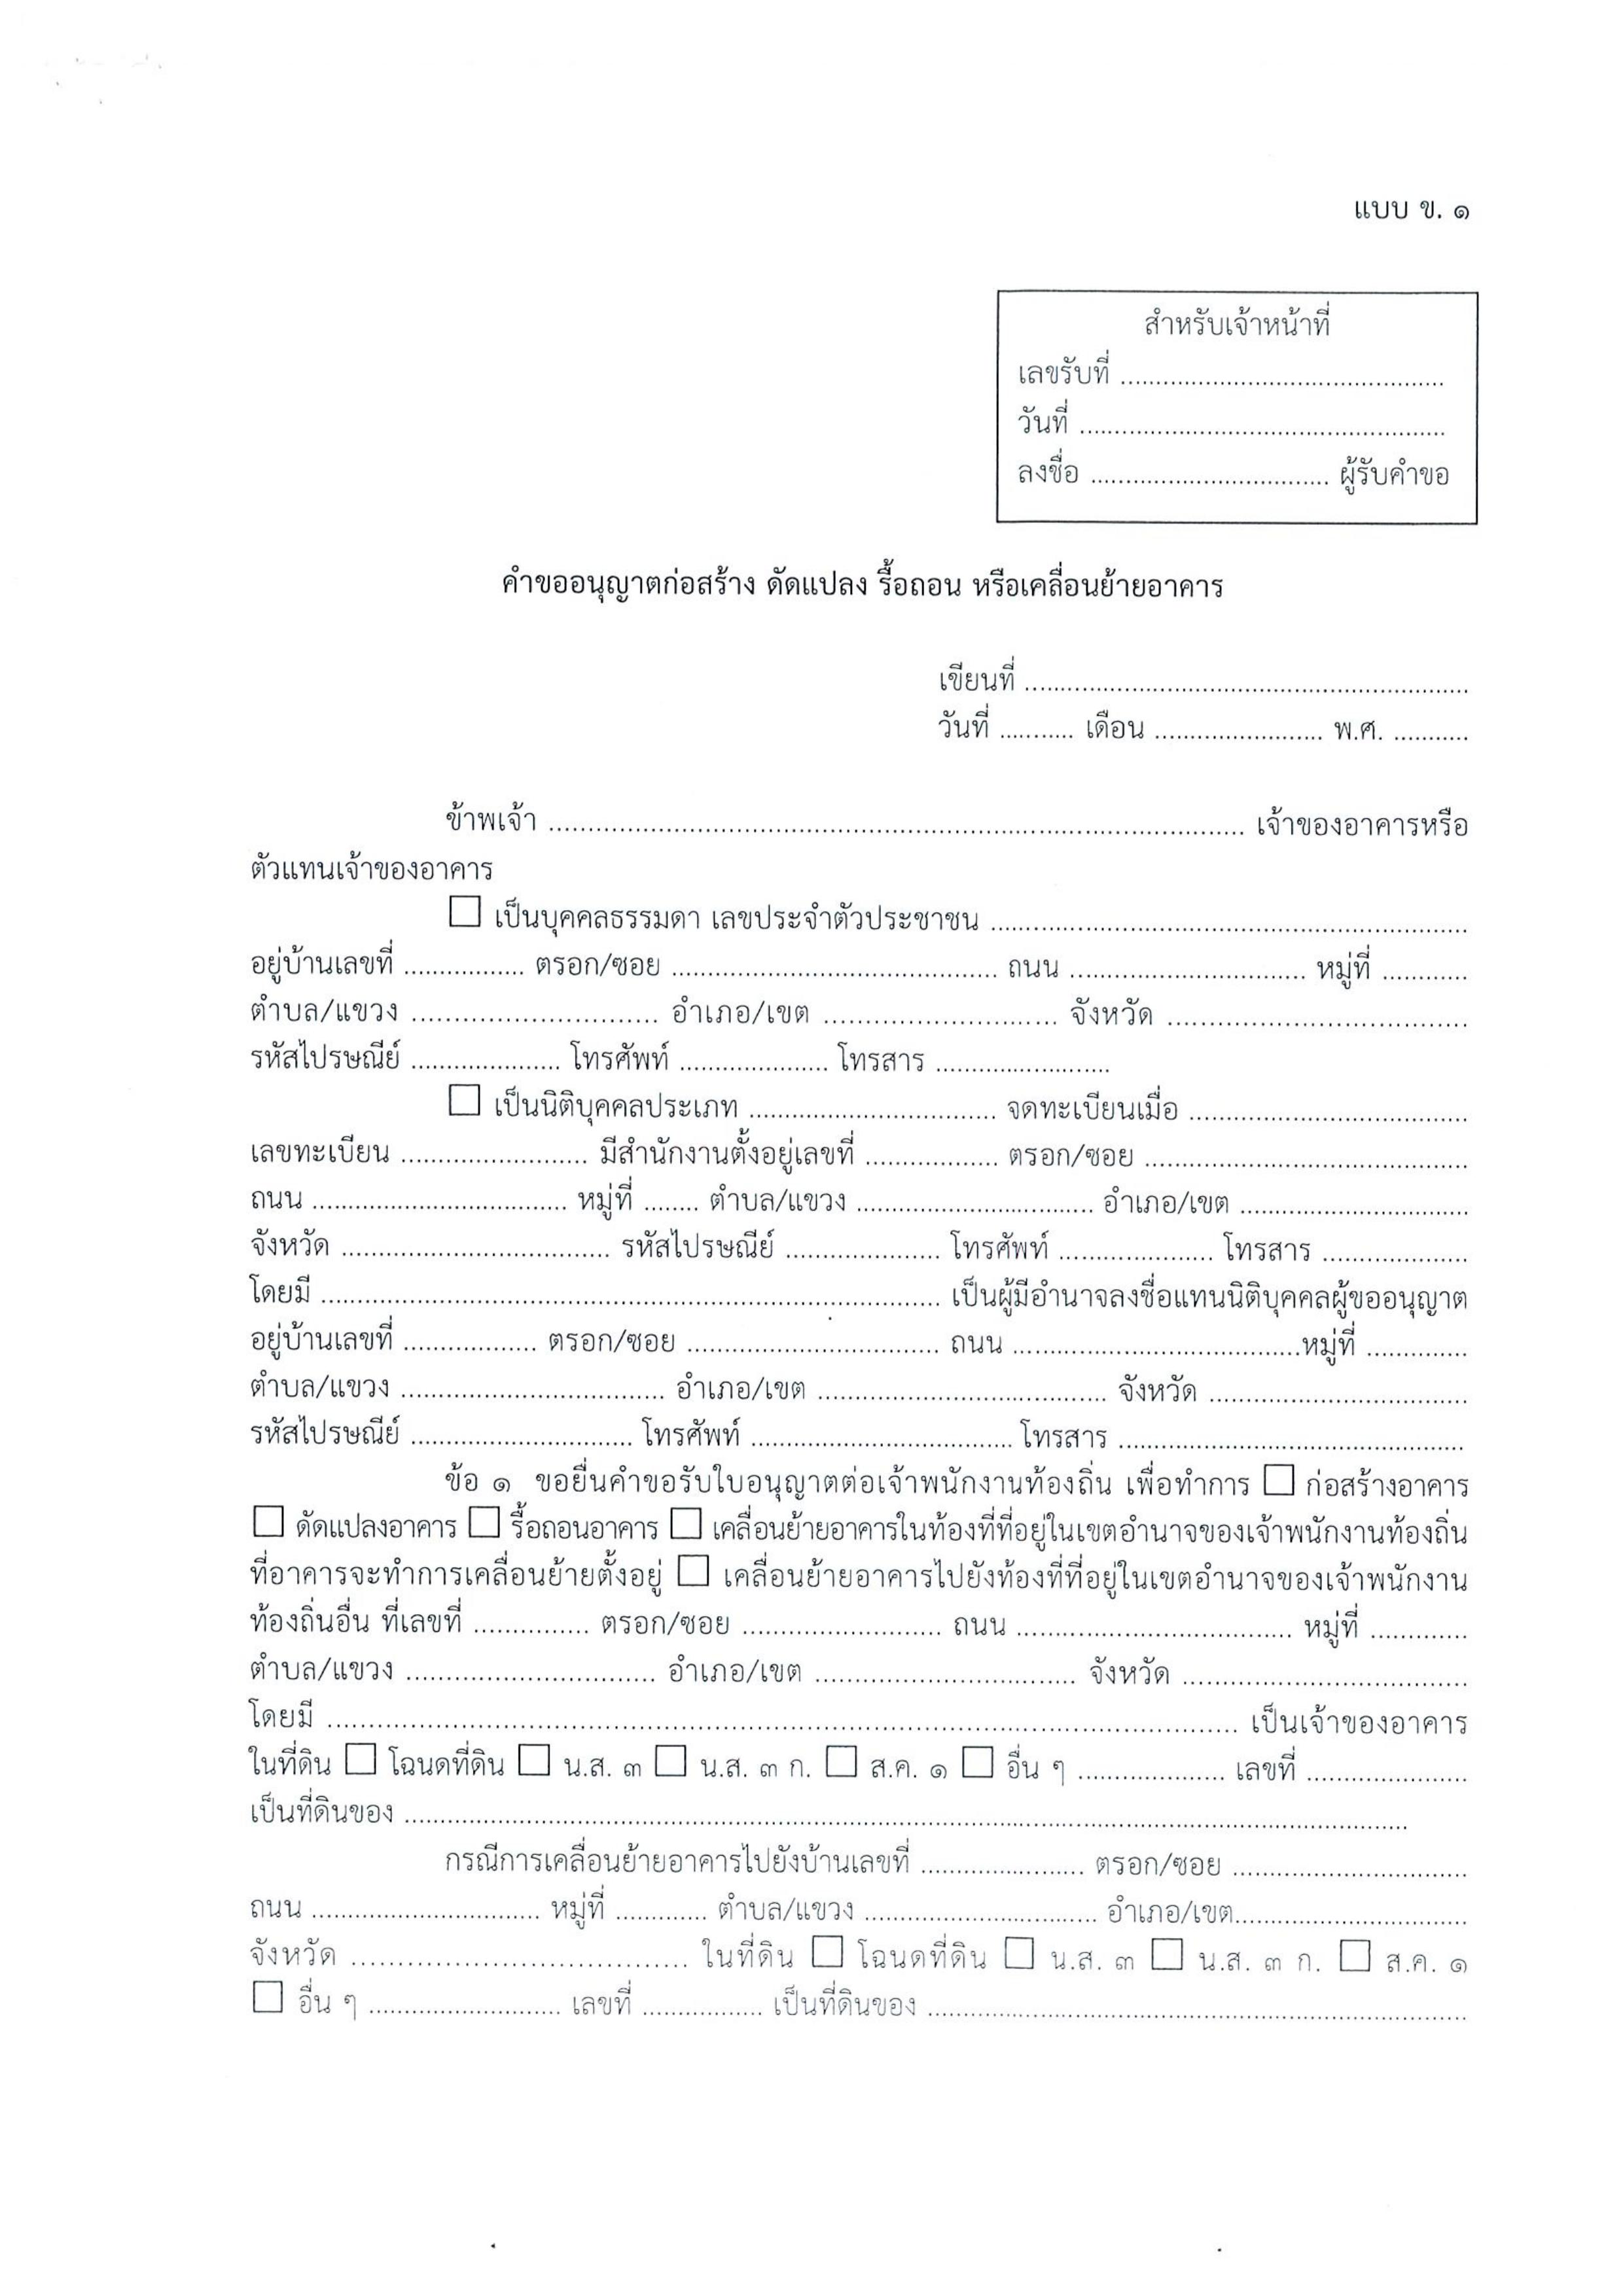 แบบ ข. ๑
สำหรับเจ้าหน้าที่
เลขรับที่ ..............................................
วันที่ ....................................................
ลงชื่อ .................................. ผู้รับคำขอ
คำขออนุญาตก่อสร้าง ดัดแปลง รื้อถอน หรือเคลื่อนย้ายอาคาร
เขียนที่ ...............................................................
วันที่ ........... เดือน ........................ พ.ศ. ...........
ข้าพเจ้า .................................................................................................. เจ้าของอาคารหรือ
ตัวแทนเจ้าของอาคาร
☐ เป็นบุคคลธรรมดา เลขประจำตัวประชาชน ....................................................................
อยู่บ้านเลขที่ ................. ตรอก/ซอย .............................................. ถนน ................................. หมู่ที่ ............
ตำบล/แขวง .................................. อำเภอ/เขต ................................. จังหวัด ..........................................
รหัสไปรษณีย์ ..................... โทรศัพท์ ..................... โทรสาร .........................
☐ เป็นนิติบุคคลประเภท ................................... จดทะเบียนเมื่อ .......................................
เลขทะเบียน .......................... มีสำนักงานตั้งอยู่เลขที่ ................... ตรอก/ซอย ..............................................
ถนน .................................... หมู่ที่ ........ ตำบล/แขวง ................................. อำเภอ/เขต ................................
จังหวัด ...................................... รหัสไปรษณีย์ ...................... โทรศัพท์ ...................... โทรสาร .....................
โดยมี ........................................................................................ เป็นผู้มีอำนาจลงชื่อแทนนิติบุคคลผู้ขออนุญาต
อยู่บ้านเลขที่ ................... ตรอก/ซอย .................................... ถนน .........................................หมู่ที่ ..............
ตำบล/แขวง ..................................... อำเภอ/เขต ......................................... จังหวัด ....................................
รหัสไปรษณีย์ ............................... โทรศัพท์ ..................................... โทรสาร .................................................
ข้อ ๑ ขอยื่นคำขอรับใบอนุญาตต่อเจ้าพนักงานท้องถิ่น เพื่อทำการ ☐ ก่อสร้างอาคาร
☐ ดัดแปลงอาคาร ☐ รื้อถอนอาคาร ☐ เคลื่อนย้ายอาคารในท้องที่ที่อยู่ในเขตอำนาจของเจ้าพนักงานท้องถิ่น
ที่อาคารจะทำการเคลื่อนย้ายตั้งอยู่ ☐ เคลื่อนย้ายอาคารไปยังท้องที่ที่อยู่ในเขตอำนาจของเจ้าพนักงาน
ท้องถิ่นอื่น ที่เลขที่ ................ ตรอก/ซอย ............................ ถนน ....................................... หมู่ที่ ..............
ตำบล/แขวง ................................... อำเภอ/เขต ..................................... จังหวัด ........................................
โดยมี ................................................................................................................................. เป็นเจ้าของอาคาร
ในที่ดิน ☐ โฉนดที่ดิน ☐ น.ส. ๓ ☐ น.ส. ๓ ก. ☐ ส.ค. ๑ ☐ อื่น ๆ ..................... เลขที่ .......................
เป็นที่ดินของ ..............................................................................................................................................
กรณีการเคลื่อนย้ายอาคารไปยังบ้านเลขที่ ....................... ตรอก/ซอย .................................
ถนน ................................ หมู่ที่ ............. ตำบล/แขวง ................................. อำเภอ/เขต.................................
จังหวัด ..................................... ในที่ดิน ☐ โฉนดที่ดิน ☐ น.ส. ๓ ☐ น.ส. ๓ ก. ☐ ส.ค. ๑
☐ อื่น ๆ ........................... เลขที่ ................. เป็นที่ดินของ ............................................................................